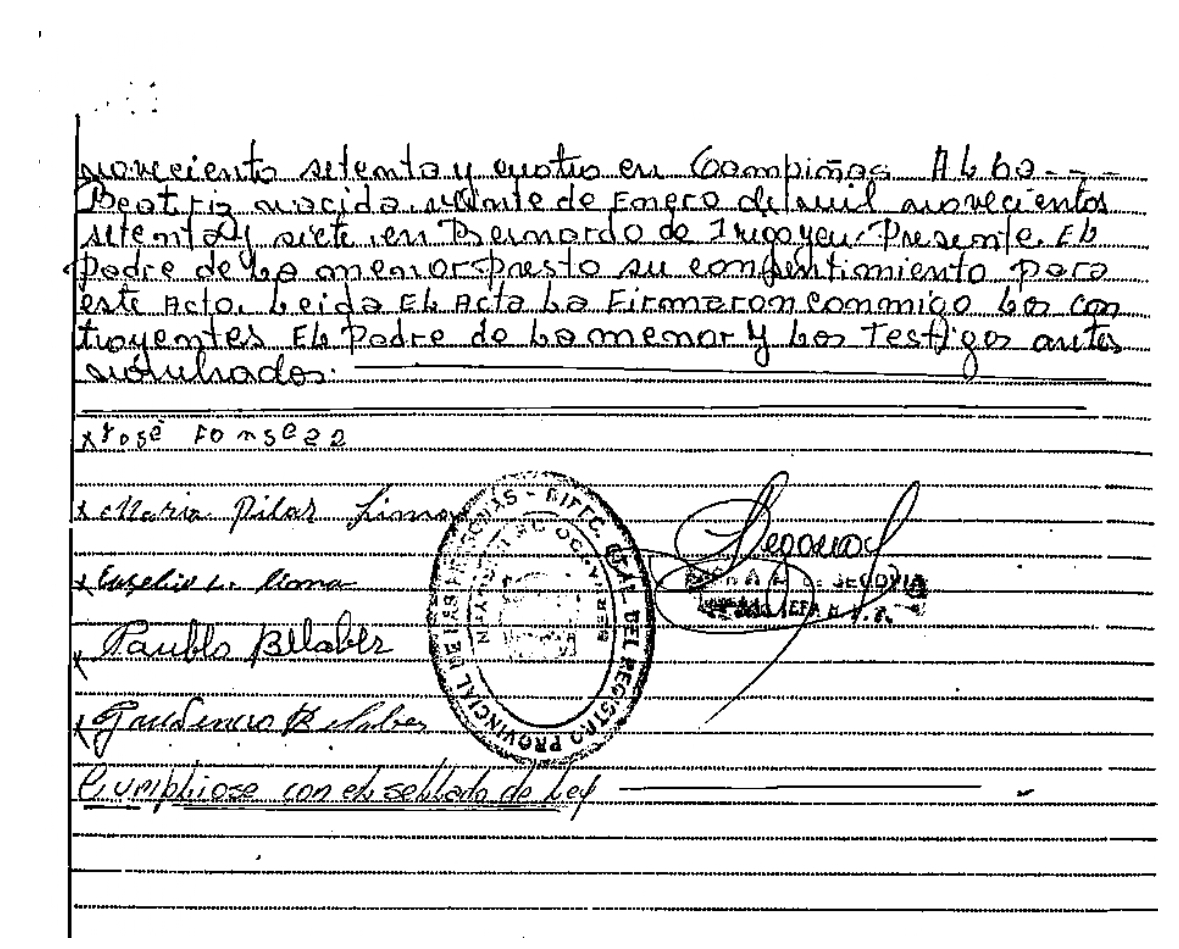 noveciento setenta y cuatro en Campiñas Alba---
Beatriz nacida veinte de Enero de mil novecientos
setenta y siete, en Bernardo de Irigoyen. Presente. El
Padre de la menor presto su consentimiento para
este Acto. Leida El Acta La Firmaron conmigo los con
trayentes El Padre de La menor y Los Testigos antes
nombrados.
x José Fonseca
x Maria Pilar Lima
x Eusebio L. Lima
x Paublo Belaber
x Gaudencio Belaber
Cumpliose con el sellado de Ley
DE SEGOVIA
JEFA
PROVINCIAL DE LAS PERSONAS - DIREC. GRAL. DEL REGISTRO